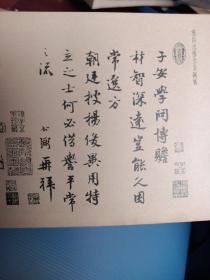 子安學問博贍
材智深遠豈能久困
常選方
朝廷搜楊俊異用特
立之士何必借譽平常
之流　公弼再拜